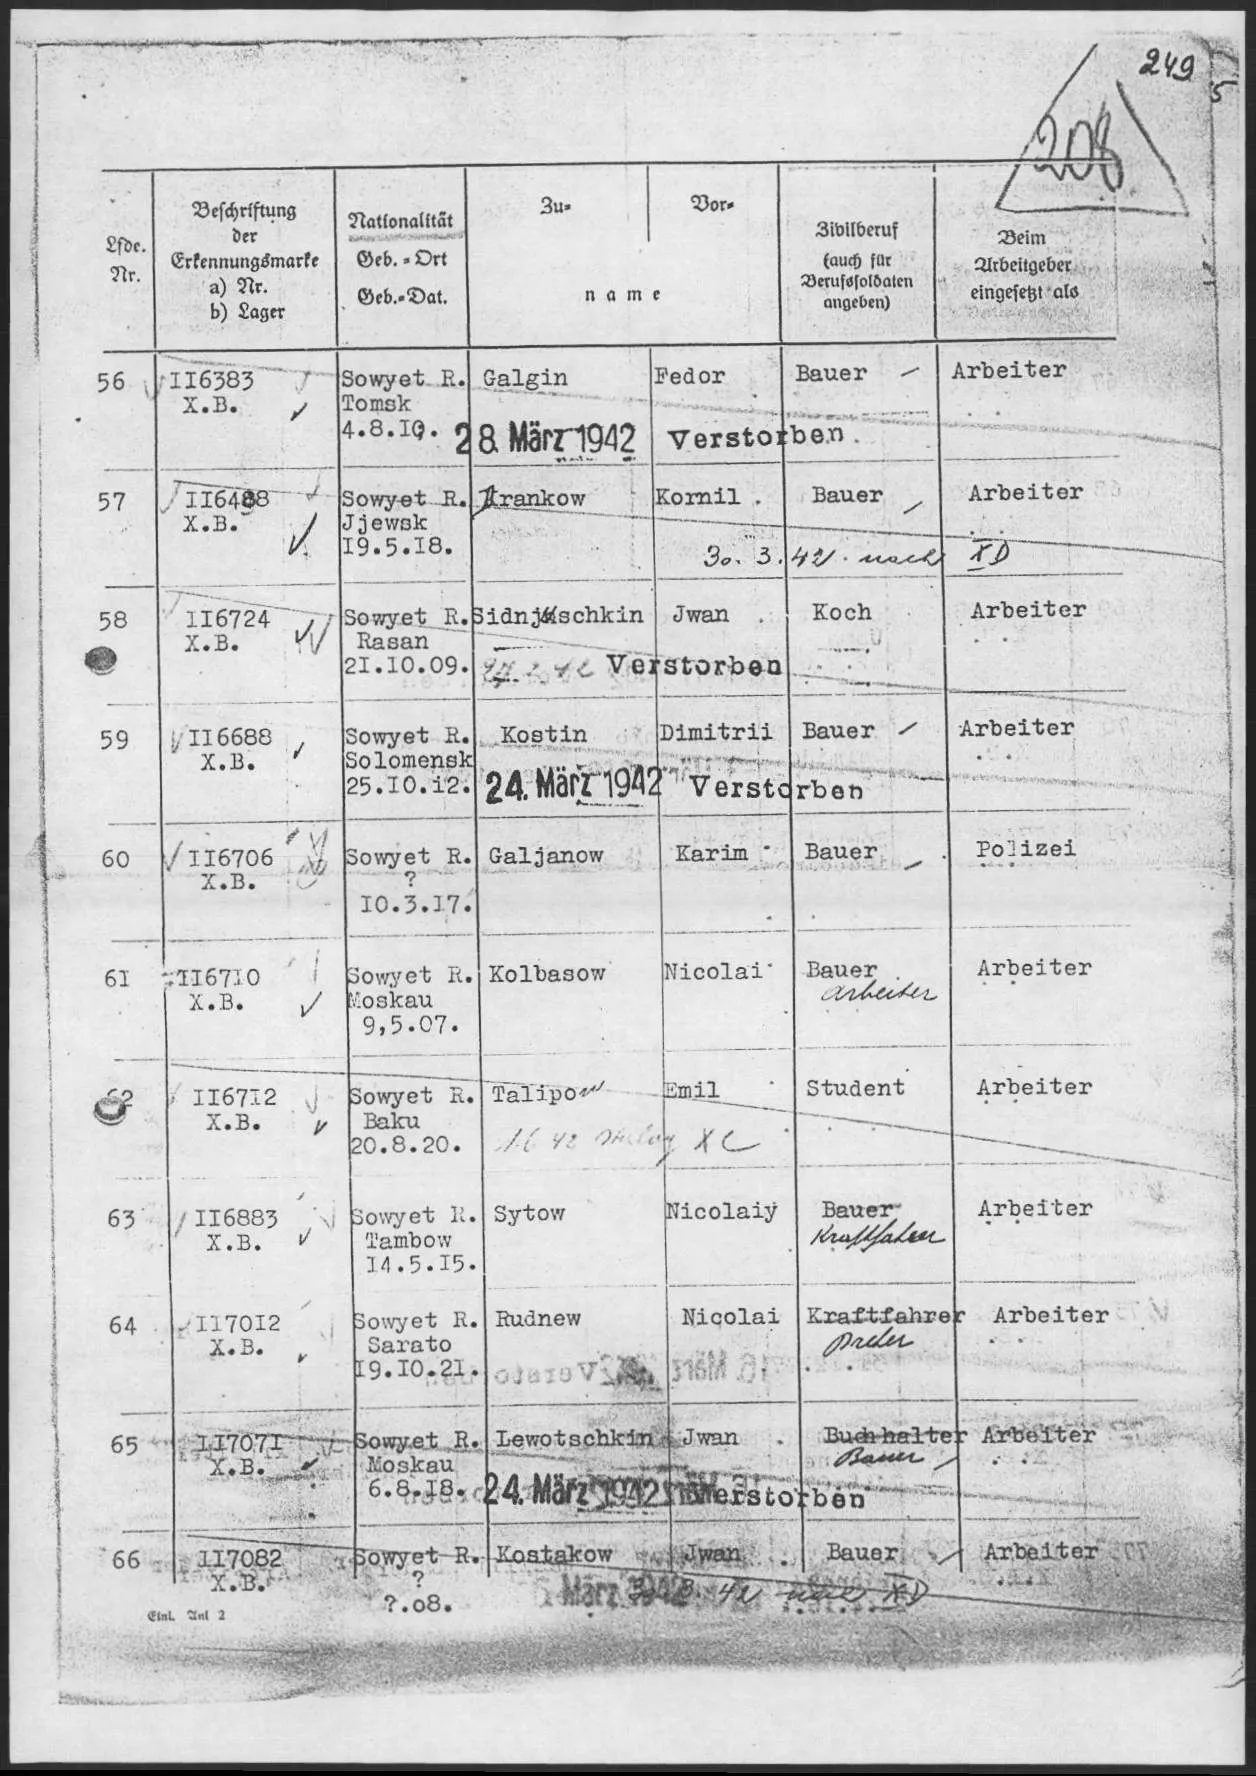 249
5
208
Lfde. Nr.
Beschriftung der Erkennungsmarke a) Nr. b) Lager
Nationalität Geb.=Ort Geb.=Dat.
Zu= Vor=
name
Zivilberuf (auch für Berufssoldaten angeben)
Beim Arbeitgeber eingesetzt als
56 II6383 Sowyet R. Galgin Fedor Bauer Arbeiter
X.B. Tomsk
4.8.10. 28. März 1942 Verstorben.
57 II6488 Sowyet R. Krankow Kornil. Bauer Arbeiter
X.B. Jjewsk
19.5.18. 30.3.42. nach XD
58 II6724 Sowyet R. Sidnjuschkin Jwan Koch Arbeiter
X.B. Rasan
2I.10.09. Verstorben
59 II6688 Sowyet R. Kostin Dimitrii Bauer Arbeiter
X.B. Solomensk
25.I0.12. 24. März 1942 Verstorben
60 II6706 Sowyet R. Galjanow Karim Bauer Polizei
X.B. ?
I0.3.I7.
61 II6710 Sowyet R. Kolbasow Nicolai Bauer Arbeiter
X.B. Moskau arbeiter
9,5.07.
62 II67I2 Sowyet R. Talipow Emil Student Arbeiter
X.B. Baku
20.8.20. XC
63 II6883 Sowyet R. Sytow Nicolaiy Bauer Arbeiter
X.B. Tambow Kraftfahrer
I4.5.I5.
64 II70I2 Sowyet R. Rudnew Nicolai Kraftfahrer Arbeiter
X.B. Sarato Dreher
I9.I0.2I.
65 II707I Sowyet R. Lewotschkin Jwan Buchhalter Arbeiter
X.B. Moskau Bauer
6.8.I8. 24. März 1942 Verstorben
66 II7082 Sowyet R. Kostakow Jwan Bauer Arbeiter
X.B. ? 42 nach XD
?.o8.
Einl. Anl 2